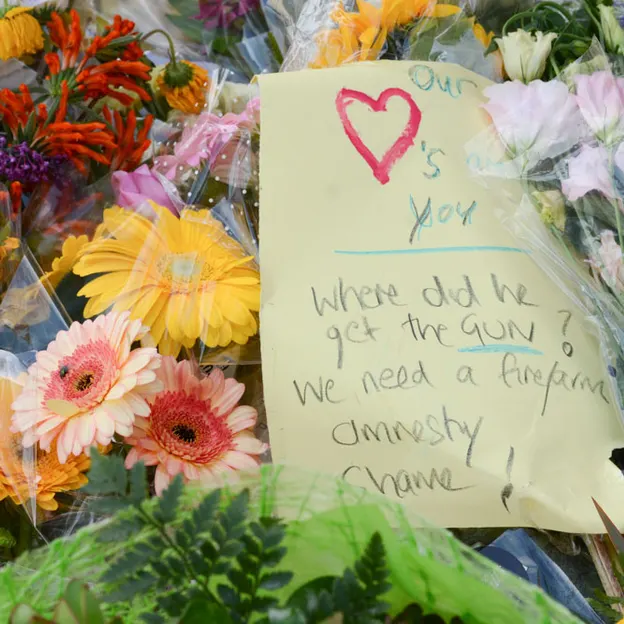 Our
's
you
Where did he
get the GUN ?
We need a firefarm
amnesty
Shame !